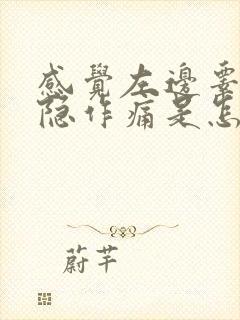 感覺左邊
隐作痛是怎
蔚芊